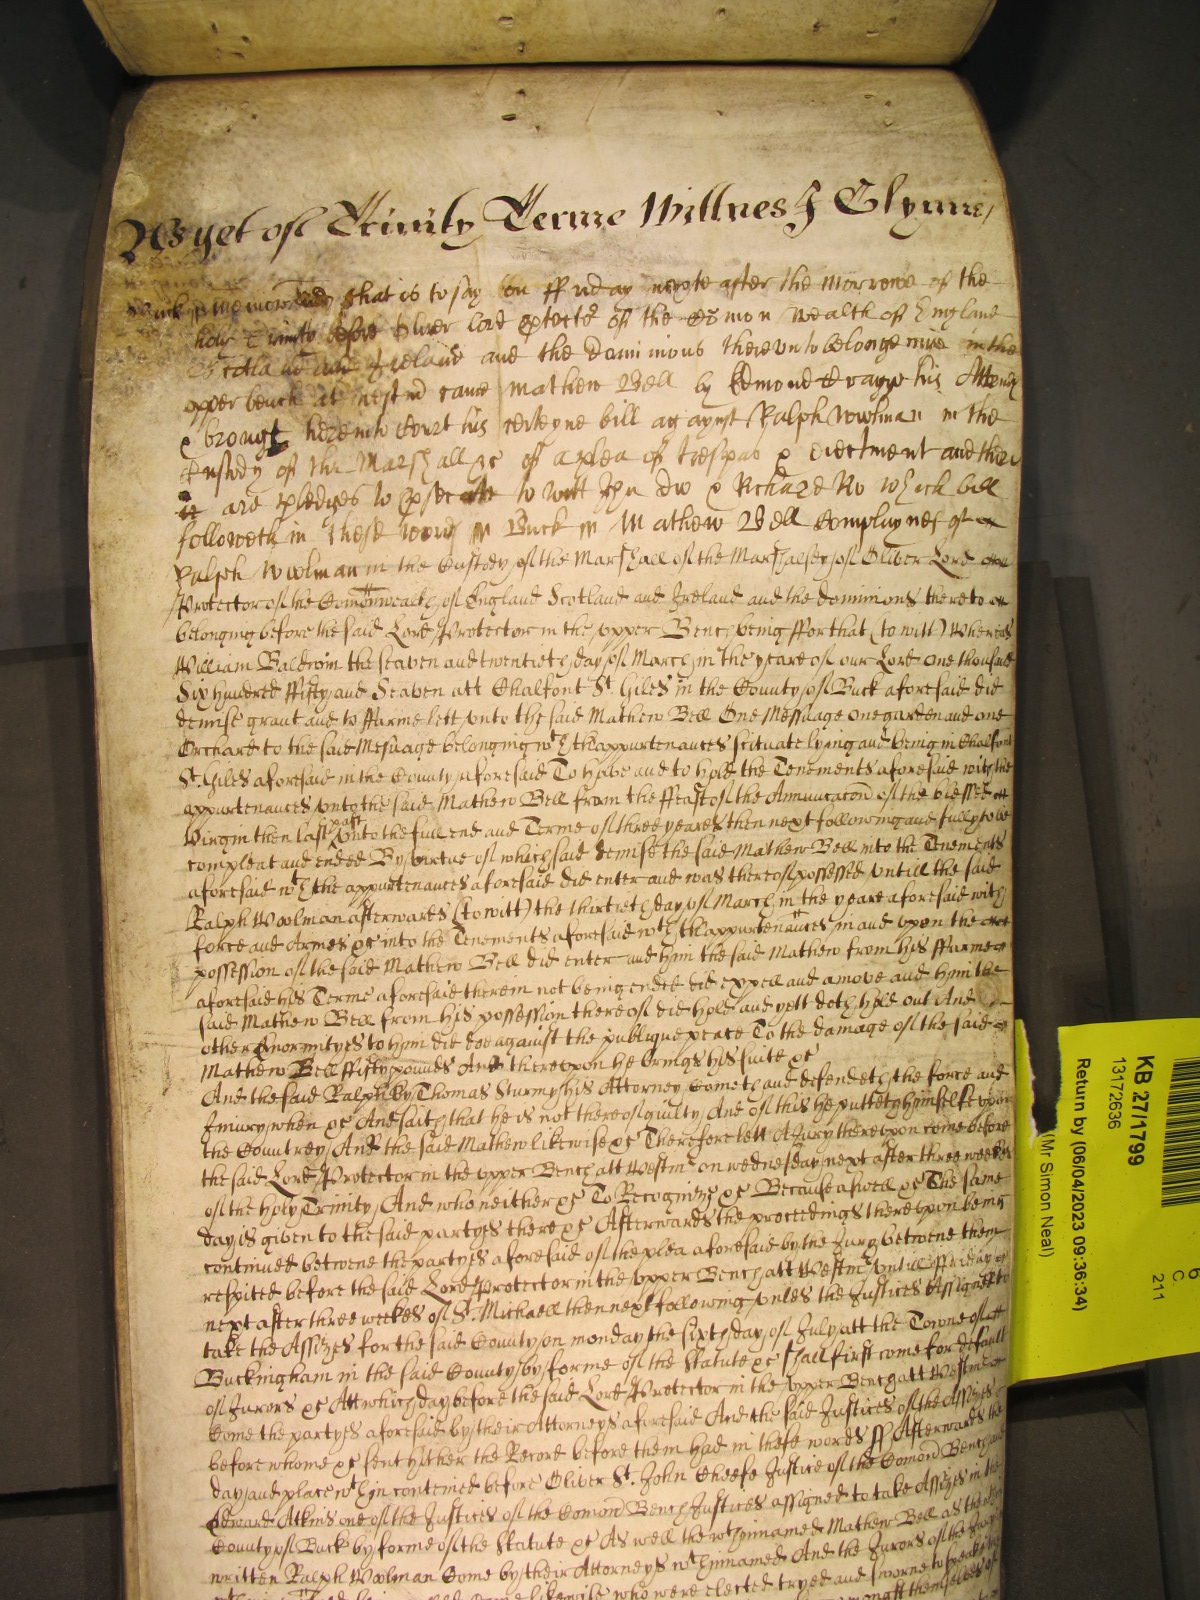 As yet of Trinity Terme Willnes J Glynne
Buck ss memorand that is to say on ffriday nexte after the morrowe of the
holy Trinity before Oliver Lord ptector of the Comon wealth of England
Scotland and Ireland and the dominions thereunto belonginge in the
upper bench at westm came Mathew Bell by Edmond his Attorny
& brought here into Court his certeyne bill agaynst Ralph Woolman in the
Custody of the Marshall &c of a plea of trespas & eiectment and there
are pledges to psecute to witt John Do & Richard Ro which bill
followeth in these words ss Buck ss Mathew Bell Complaynes of
Ralph Woolman in the Custody of the Marshall of the Marshalsey of Oliver Lord
Protector of the Comonwealth of England Scotland and Ireland and the dominions thereto
belonging before the said Lord Protector in the upper Bench being ffor that (to witt) Whereas
William Baldwin the seaven and twentieth day of March in the yeare of our Lord one thousand
Six hundred ffifty and Seaven att Chalfont St. Giles in the County of Buck aforesaid did
demise grant and to ffarme lett unto the said Mathew Bell One Messuage one garden and one
Orchard to the said Messuage belonging wth thappurtenances scituate lying and being in Chalfont
St. Giles aforesaid in the County aforesaid To have and to hold the Tenements aforesaid with the
appurtenances unto the said Mathew Bell from the ffeast of the Annuncacon of the blessed
Virgin then last past unto the full end and Terme of three yeares then next following and fully to be
compleat and ended By virtue of which said demise the said Mathew Bell into the Tenements
aforesaid wth the appurtenances aforesaid did enter and was thereof possessed untill the said
Ralph Woolman afterwards (to witt) the thirtieth day of March in the yeare aforesaid with
force and Armes &c into the Tenements aforesaid wth thappurtenances in and upon the
possession of the said Mathew Bell did enter and him the said Mathew from his ffarme
aforesaid his Terme aforesaid therein not being ended did expell and amove and him the
said Mathew Bell from his possession thereof did hold and yett doth hold out And
other Enormityes to him did doe against the publique peace To the damage of the said
Mathew Bell ffifty pounds And thereupon he brings his suite &c
And the said Ralph by Thomas Sturmy his Attorney Cometh and defendeth the force and
Iniury when &c And saith that he is not thereof guilty And of this he putteth himselfe upon
the Countrey And the said Mathew likewise &c Therefore lett a Jury thereupon come before
the said Lord Protector in the upper Bench att Westmr on wednesday next after three weekes
of the holy Trinity And who neither &c To Recognize &c Because aswell &c The same
day is given to the said partyes there &c Afterwards the proceedings thereupon being
continued betwene the partyes aforesaid of the plea aforesaid by the Jury betwene them
respited before the said Lord Protector in the upper Bench att Westmr untill ffriday
next after three weekes of St. Michaell then next following unles the Justices Assigned to
take the Assizes for the said County on monday the sixth day of July att the Towne of
Buckingham in the said County by forme of the Statute &c shall first come for default
of Jurors &c Att which day before the said Lord Protector in the upper Bench att Westmr
Come the partyes aforesaid by their Attorneys aforesaid And the said Justices of the Assizes
before whome &c sent hither the Record before them had in these words ss Afterwards the
day and place wthin conteined before Oliver St. John Cheefe Justice of the Comon Bench and
Edward Atkins one of the Justices of the Comon Bench Justices assigned to take Assizes in the
County of Buck by forme of the Statute &c As well the wthinnamed Mathew Bell as the
written Ralph Woolman Come by their Attorneys wthinnamed And the Jurors of the Jury
likewise who were elected tryed and sworne to speake
amongst themselves of
KB 27/1799
13172636
Return by (06/04/2023 09:36:34)
(Mr Simon Neal)
C
211